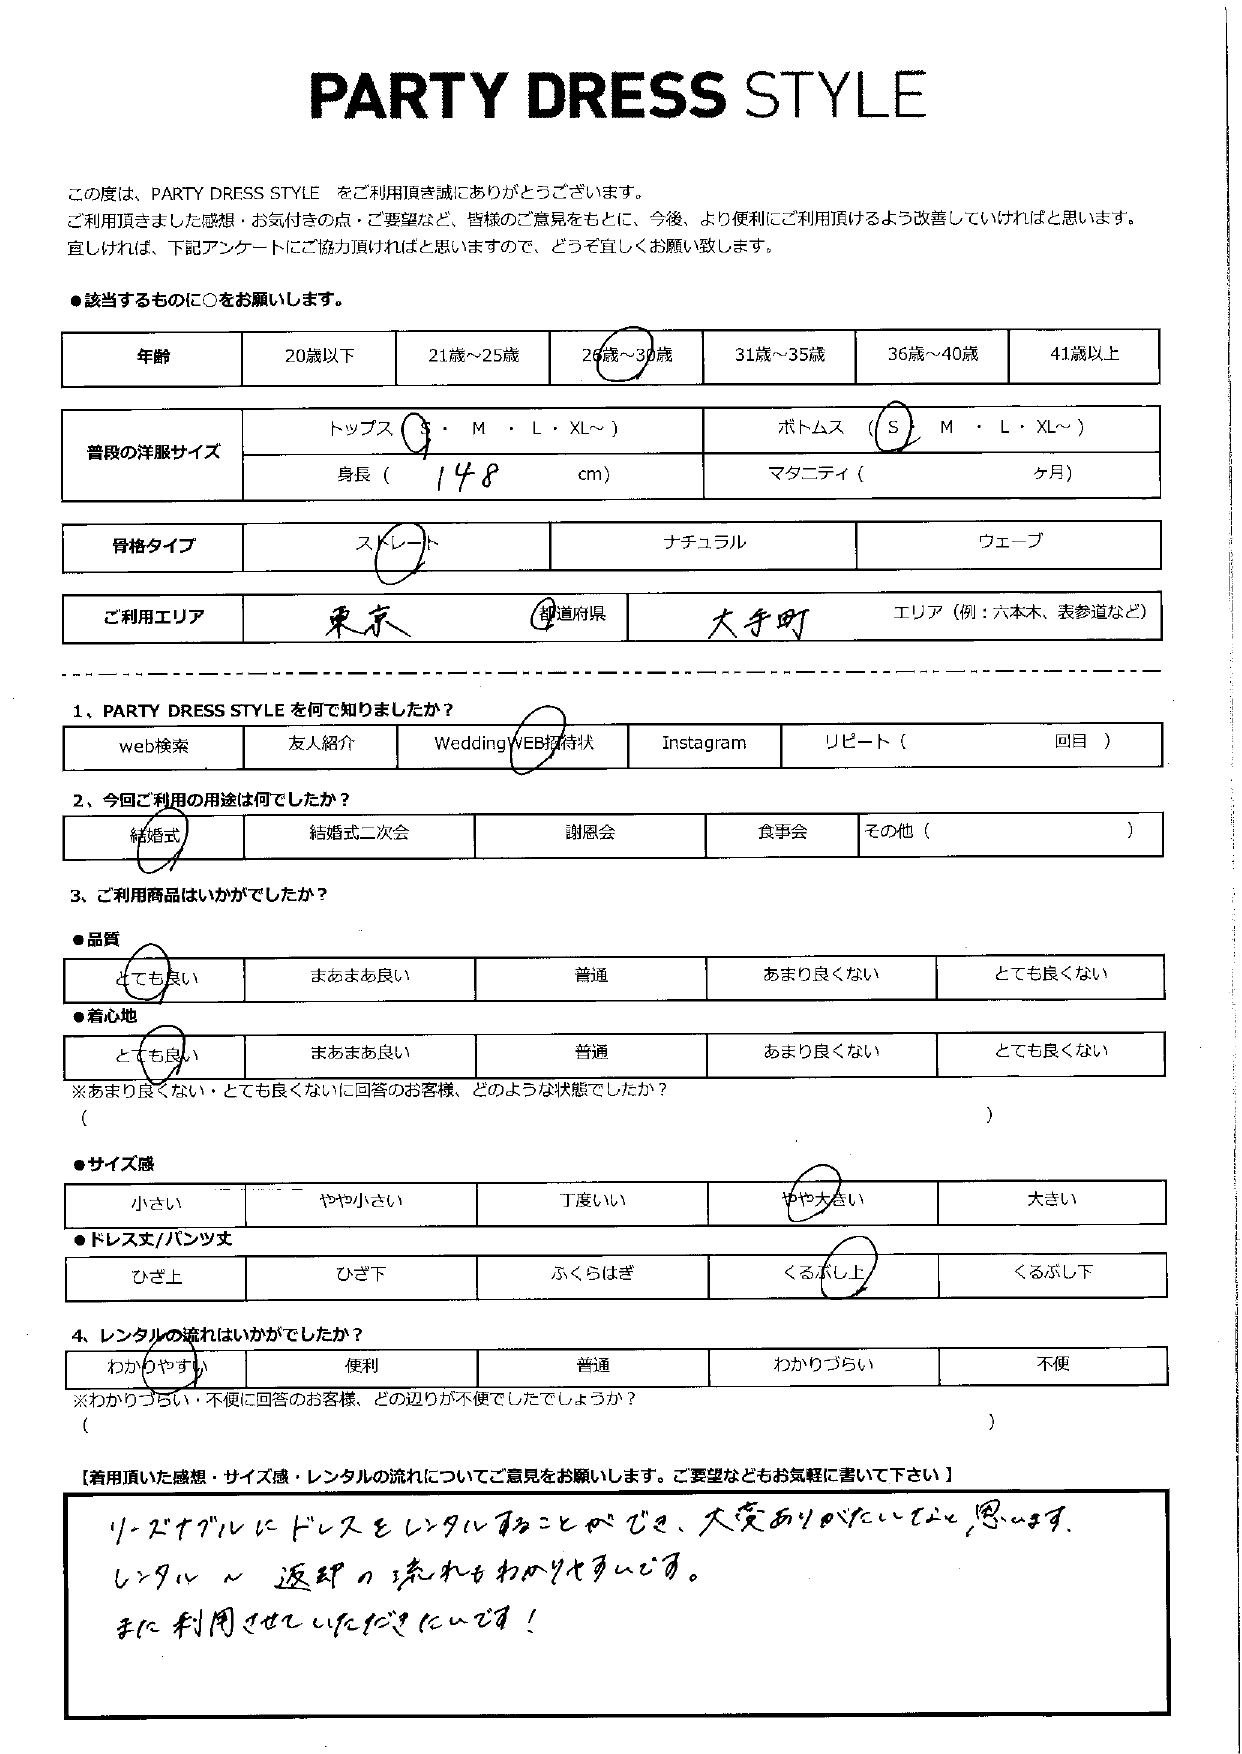 PARTY DRESS STYLE
この度は、PARTY DRESS STYLE をご利用頂き誠にありがとうございます。
ご利用頂きました感想・お気付きの点・ご要望など、皆様のご意見をもとに、今後、より便利にご利用頂けるよう改善していければと思います。
宜しければ、下記アンケートにご協力頂ければと思いますので、どうぞ宜しくお願い致します。
●該当するものに○をお願いします。
年齢 20歳以下 21歳～25歳 26歳～30歳 31歳～35歳 36歳～40歳 41歳以上
普段の洋服サイズ トップス (S・ M ・ L・ XL～) ボトムス (S・ M ・ L・ XL～)
身長 ( 148 cm) マタニティ ( ヶ月)
骨格タイプ ストレート ナチュラル ウェーブ
ご利用エリア 東京 都道府県 大手町 エリア（例：六本木、表参道など）
1、PARTY DRESS STYLE を何で知りましたか？
web検索 友人紹介 WeddingWEB招待状 Instagram リピート（ 回目 ）
2、今回ご利用の用途は何でしたか？
結婚式 結婚式二次会 謝恩会 食事会 その他（ ）
3、ご利用商品はいかがでしたか？
●品質
とても良い まあまあ良い 普通 あまり良くない とても良くない
●着心地
とても良い まあまあ良い 普通 あまり良くない とても良くない
※あまり良くない・とても良くないに回答のお客様、どのような状態でしたか？
（ ）
●サイズ感
小さい やや小さい 丁度いい やや大きい 大きい
●ドレス丈/パンツ丈
ひざ上 ひざ下 ふくらはぎ くるぶし上 くるぶし下
4、レンタルの流れはいかがでしたか？
わかりやすい 便利 普通 わかりづらい 不便
※わかりづらい・不便に回答のお客様、どの辺りが不便でしたでしょうか？
（ ）
【着用頂いた感想・サイズ感・レンタルの流れについてご意見をお願いします。ご要望などもお気軽に書いて下さい】
リーズナブルにドレスをレンタルすることができ、大変ありがたいなと思います.
レンタル～返却の流れもわかりやすいです。
また利用させていただきたいです！